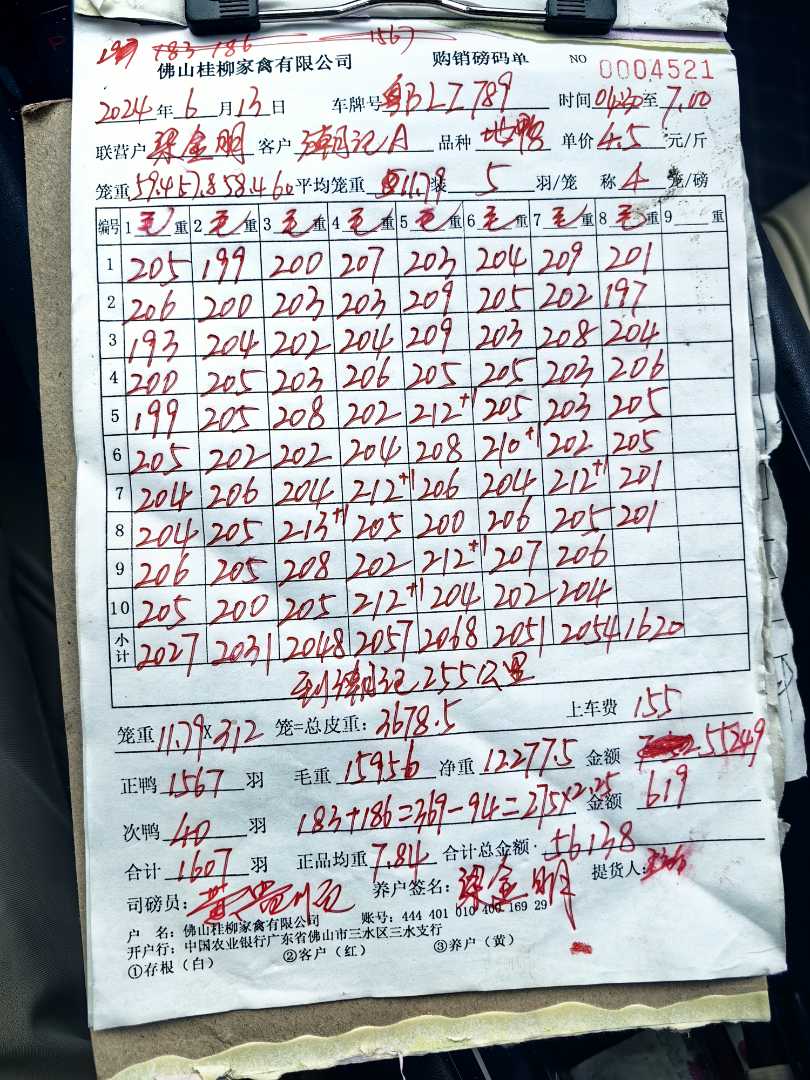 183 186 1567
佛山桂柳家禽有限公司 购销磅码单 NO 0004521
2024年6月13日 车牌号 789 时间 至7.00
联营户 梁金明 客户 潮记A 品种 单价4.5元/斤
笼重59.4 57.8 58.4 60 平均笼重 11.79 装5羽/笼 称4笼/磅
编号 1毛重 2毛重 3毛重 4毛重 5毛重 6毛重 7毛重 8毛重 9 重
1 205 199 200 207 203 204 209 201
2 206 200 203 203 209 205 202 197
3 193 204 202 204 209 203 208 204
4 200 205 203 206 205 205 203 206
5 199 205 208 202 212+1 205 203 205
6 205 202 202 204 208 210+1 202 205
7 204 206 204 212+1 206 204 212+1 201
8 204 205 213+1 205 200 206 205 201
9 206 205 208 202 212+1 207 206
10 205 200 205 212+1 204 202 204
小计 2027 2031 2048 2057 2068 2051 2054 1620
到潮记255公里
笼重11.79×312笼=总皮重:3678.5 上车费155
正鸭1567羽 毛重15956 净重12277.5 金额 55249
次鸭40羽 183+186=369-94=275×2.25 金额 619
合计1607羽 正品均重7.84 合计总金额·56138
司磅员: 养户签名:梁金明 提货人:
户 名:佛山桂柳家禽有限公司 账号:444 401 010 400 169 29
开户行:中国农业银行广东省佛山市三水区三水支行
①存根(白) ②客户(红) ③养户(黄)